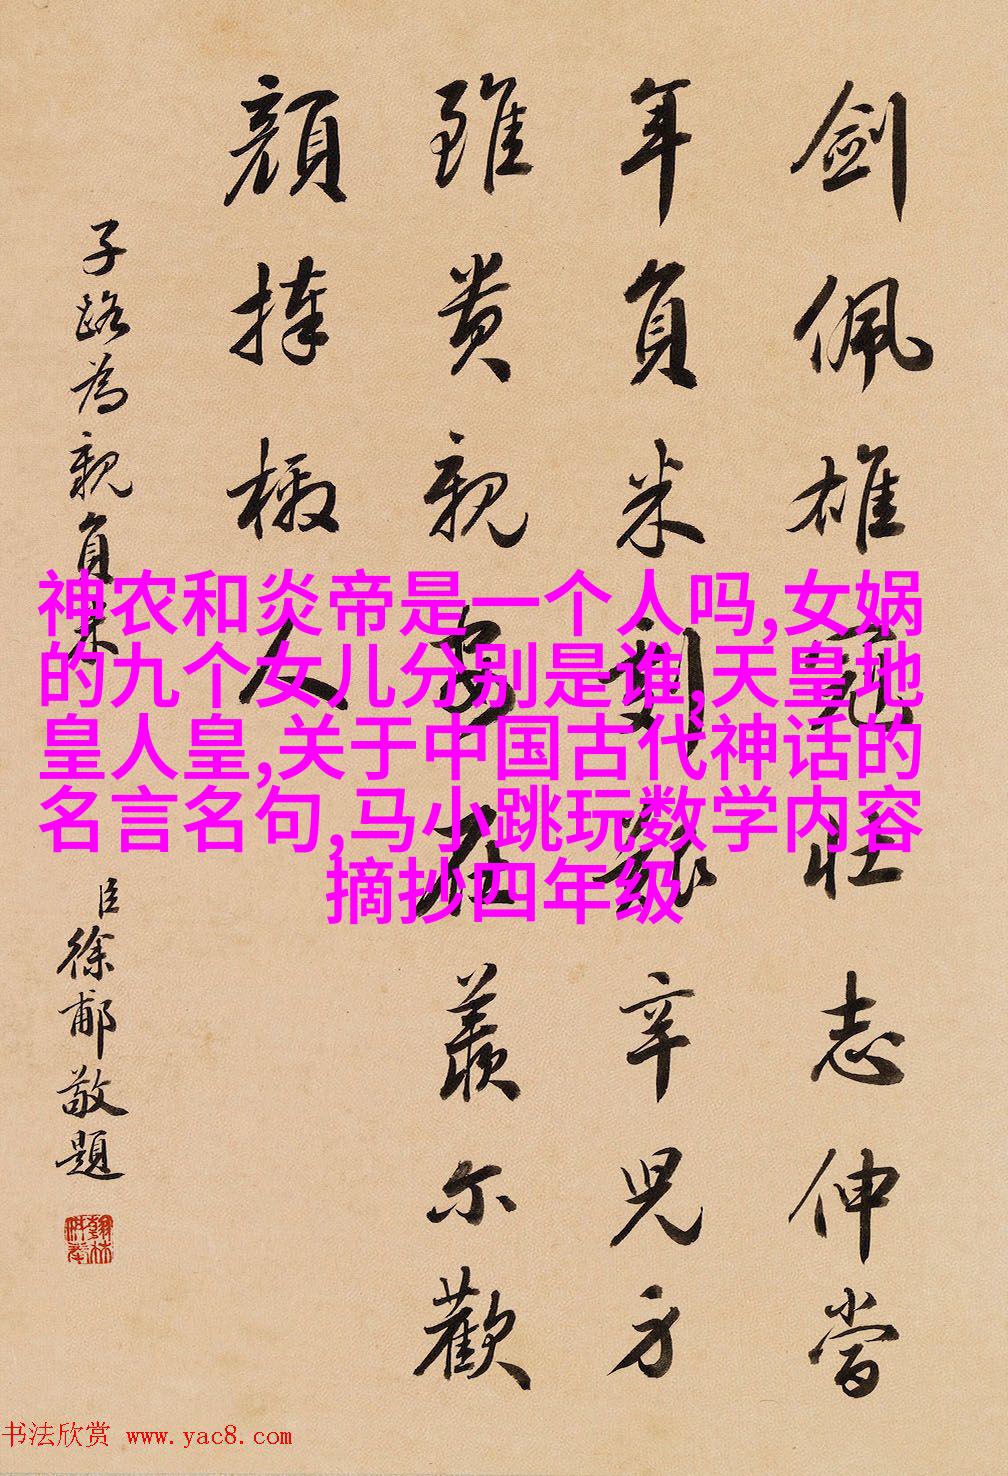 劍佩雄冠壯志伸當
年負米劇艱辛兒方
雖貴親安在羨尔歡
顏捧檄人
子路為親負米
臣徐郙敬題
神农和炎帝是一个人吗,女娲
的九个女儿分别是谁,天皇地
皇人皇,关于中国古代神话的
名言名句,马小跳玩数学内容
摘抄四年级
书法欣赏 www.yac8.com